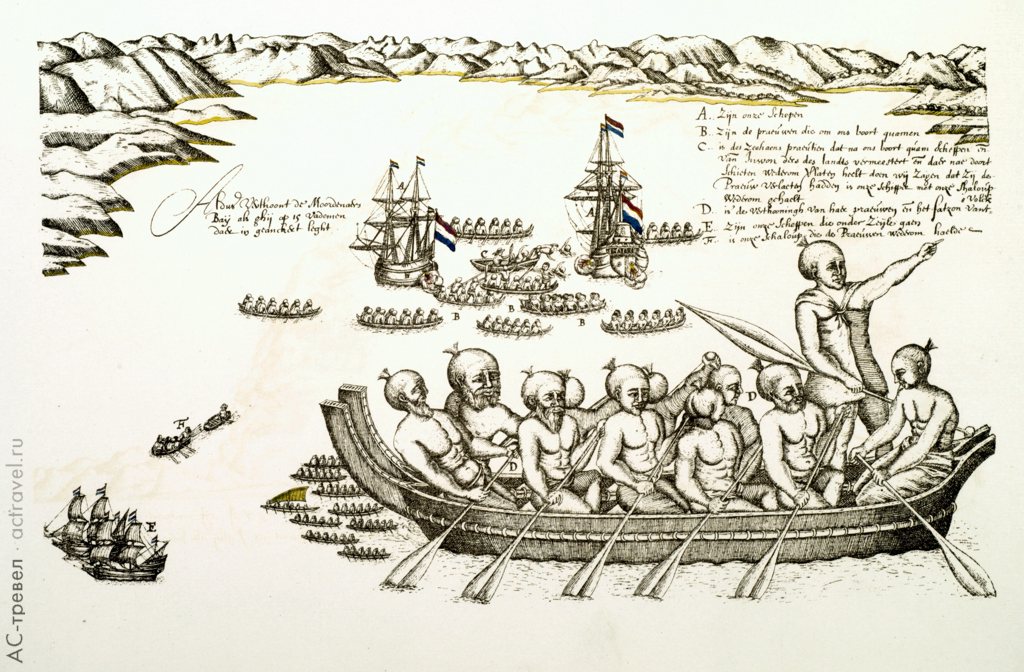 A. Zijn onze Schepen
B. Zijn de praeuwen die om ons boort quamen
C. is des Zeehaens praeuken dat na ons boort quam scheppen en
van Inwon ders des landts vermeestert en daer nae door
Schieten Wederom Verlaten heelt doen wij Zagen dat Zij de
Praeuw verlaeten hadden is onze Schipper met onze Shaloup
Wederom gehaelt
D. is de Verthooningh van haer praeuwen en het fatzon van't Volck
E. Zijn onze Scheepen die onder Zeijle gaen
F. is onze Schaloup die de Praeuwen wederom haelde
Aldus Verthoont de Moordenaers
Baij als ghij op 15 Vademen
daer in geanckert leght
A
A
B
B
B
D
D
F
E
АС-тревел · actravel.ru